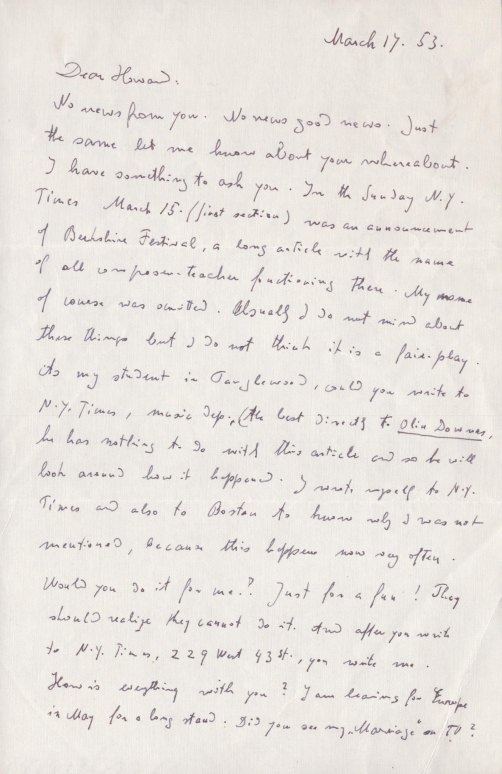 March 17. 53.
Dear Howard.
No news from you. No news good news. Just
the same let me know about your whereabout.
I have something to ask you. In the Sunday N.Y.
Times March 15. (first section) was an announcement
of Berkshire Festival, a long article with the name
of all composer-teacher functioning there. My name
of course was omitted. Usually I do not mind about
these things but I do not think it is a fair-play.
As my student in Tanglewood, could you write to
N.Y. Times, music dep., (the best directly to Olin Downes,
he has nothing to do with this article and so he will
look around how it happened. I wrote myself to N.Y.
Times and also to Boston to know why I was not
mentioned, because this happens now very often.
Would you do it for me.? Just for a fun! They
should realize they cannot do it. And after you write
to N.Y. Times, 229 West 43 St., you write me.
How is everything with you? I am leaving for Europe
in May for a long stand. Did you see my „Marriage" on TV?